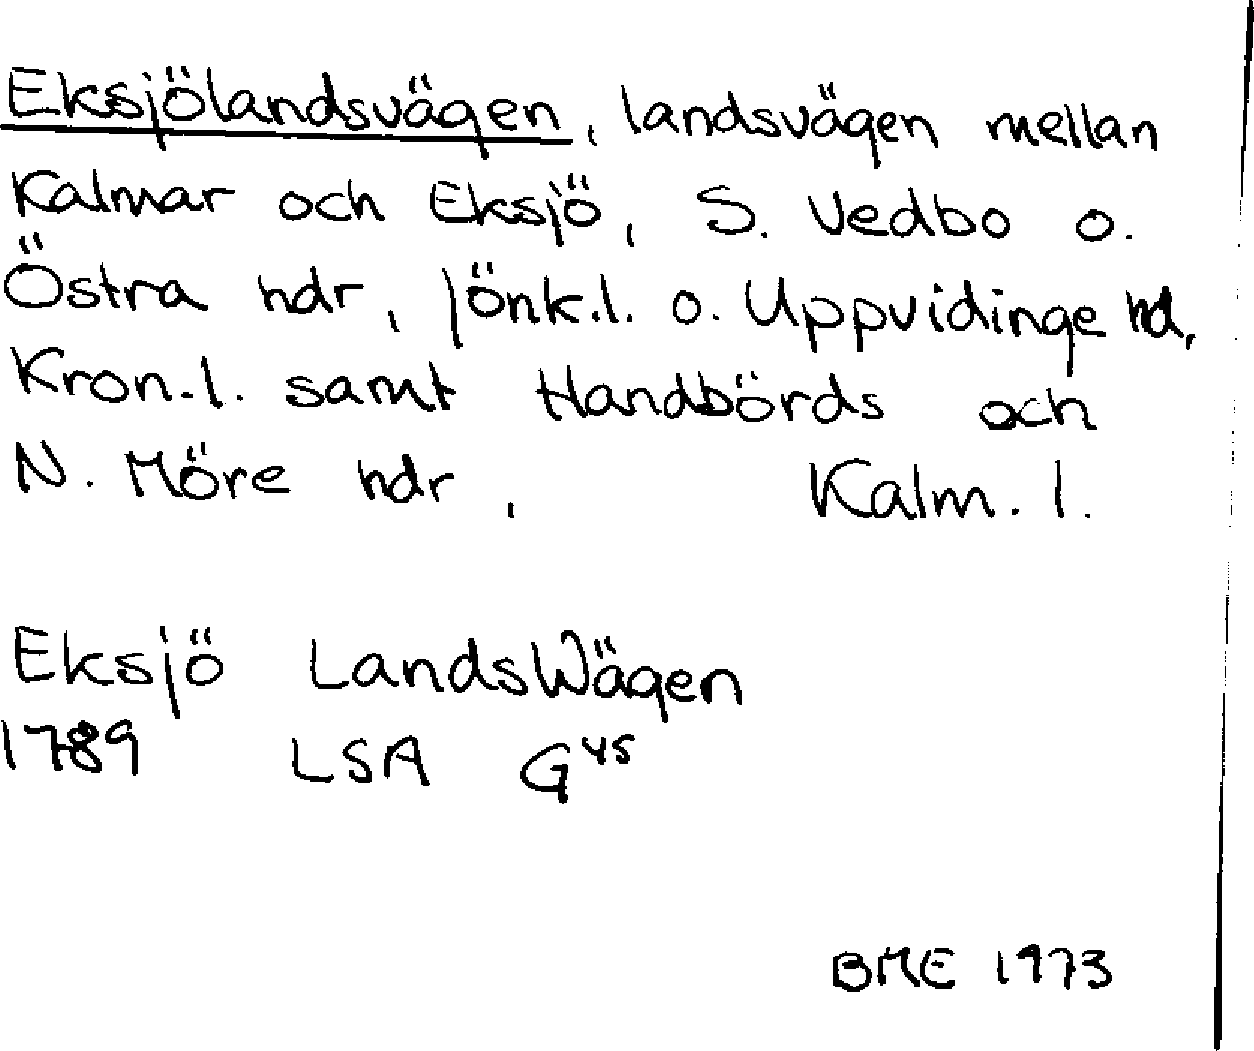 Eksjölandsvägen, landsvägen mellan
Kalmar och Eksjö, S. Vedbo o.
Östra hdr, Jönk.l. o. Uppvidinge hd,
Kron.l. samt Handbörds och
N. Möre hdr, Kalm.l.
Eksjö LandsWägen
1789 LSA G45
BME 1973